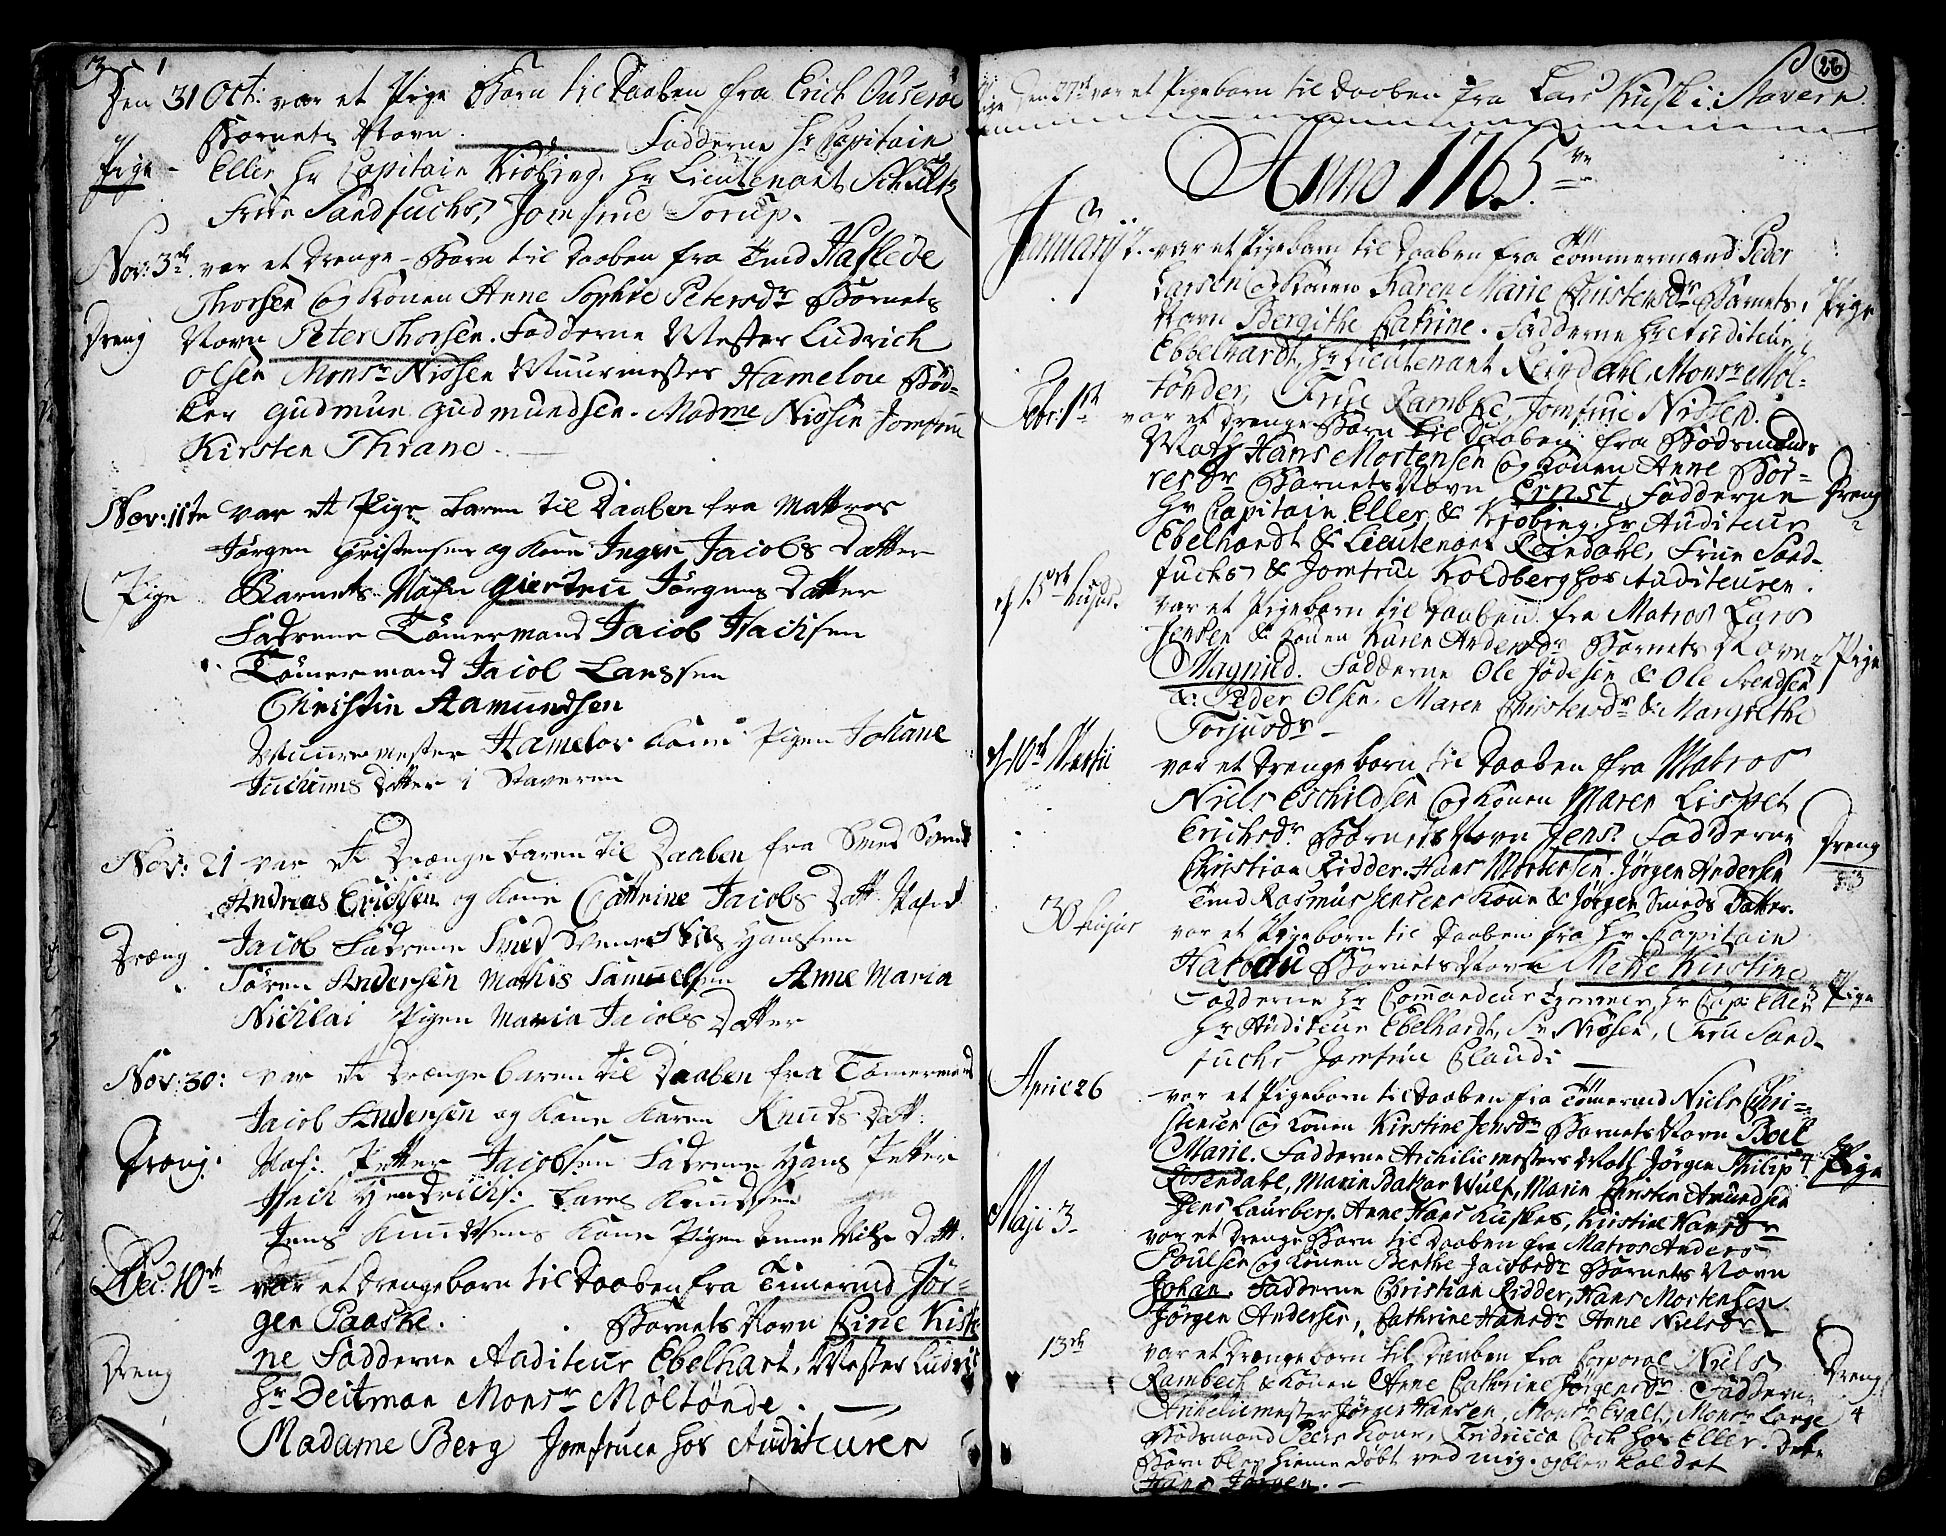 Den 31 Oct: var et Pige Barn til Daaben fra Erich
Barnets Navn Fadderne Hr Capitain
Pige
Eller Hr Capitain Kiøbing. Hr Lieutenant Schultz
Frue Sandfuchs, Jomfrue Torup.
Nov: 3die var et Drenge-Barn til Daaben fra Tmd Haflede
Thorsen og Konen Anne Sophie Petersdr Barnets
Dreng
Navn Peter Thorsen. Fadderne Mester Ludrich
Olsen Monsr Nissen Muurmester Hamelou Bød-
ker Gudmun Gudmundsen. Madme Nissen Jomfru
Kirsten Thrane.
Nov: 11te var et Pige baren til Daaben fra Mattros
Jørgen Christensen og Kone Inger Jacobs Datter
Pige
Barnets Nafn Giertru Jørgens Datter
Fadrene Tømermand Jacob Isachsen
Tømermand Jacob Larssen
Christin Aamundsen
Muuremester Hamelov Kone Pigen Johane
Datter i Staveren
Nov: 21 var et Drænge baren til Daaben fra Smed Svend
Andreas Erichsen og Kone Cattrine Jacobs Datt. Nafnet
Dræng
Jacob Fadrene Smed Svend Nils Hanssen
Søren Andersen Mathis Samuelsen Anne Maria
Nichlai Pigen Maria Jacobs Datter
Nov: 30: var et Drænge baren til Daaben fra Tømermand
Jacob Andersen og Kone Karen Knuds Datt.
Dræng.
Naf: Petter Jacobsen Fadrene Hans Petter
Isach Hendrichs: Lars Knudsen
Jens Knudsens Kone Pigen Anne Nils Datt.
Dec. 10de var et Drengebarn til Daaben fra Timermd Jør-
gen Paaske. Barnets Navn Cirie Kisti
Dreng
ne Fadderne Auditeur Ebelhart, Mester Ludvig
Hr Deitman Monsr Moltønde.
Madame Berg Jomfruen hos Auditeuren
26
Pige Den 27de var et Pigebarn til Daaben fra Lars Kusk i Stavern
Anno 1765
January 7. var et Pigebarn til Daaben fra Tømmermand Peder
Larsen og Konen Karen Marie Christensdr Barnets
Pige
Navn Bergithe Catrine. Fadderne Hr Auditeur
Ebbelhardt, Hr Lieutenant Reindahl, Monsr Mol-
tønder, Frue Lambke, Jomfrue Nissen.
Febr: 1ste var et Drenge Barn til Daaben fra Bødsmands
Math Hans Mortensen og Konen Anne Bør-
resdr Barnets Navn Ernst. Fadderne
Dreng
Hr Capitain Eller & Kiøbing. Hr Auditeur
Ebelhardt & Lieutenant Reindahl, Frue Sand-
fuchs & Jomfrue Koldberg hos Auditeuren.
d 15de hujus. var et Pigebarn til Daaben fra Matros Lars
Jensen & Konen Karen Andersdr Barnets Navn
Pige
Magnild. Fadderne Ole & Ole Svendsen
& Peder Olsen, Maren Christensdr & Margrethe
Torjusdr
d 10de Martii var et Drengebarn til Daaben fra Matros
Niels Eschildsen og Konen Maren Lispet
Erichsdr Barnets Navn Jens. Fadderne
Dreng
Christian Ridder. Hans Mortensen. Jørgen Andersen
Tmd Rasmus Jensens Kone & Jørgen Smeds Datter.
30 hujus var et Pigebarn til Daaben fra Hr Capitain
Barnets Navn Mette Kirstine
Pige
Fadderne Hr Commandeur Hr Cap: Eller
Hr Auditeur Ebelhardt, Sr Niøsen, Fru Sand-
fuchs Jomfrue Claudi
April 26 var et Pigebarn til Daaben fra Tømermd Niels Chri-
stensen og Konen Kirstine Jensdr Barnets Navn Boel
Marie. Fadderne Archilie mesters Math Jørgen Philip
Pige
Rosendahl, Marin Batzar Wulf, Marin Christin Amundsen
Jens Laurberg. Anne Hans Kuskes, Kirstine Hansdr
Maji 3 var et Drenge Barn til Daaben fra Matros Anders
Poulsen og Konen Berthe Jacobsdr Barnets Navn
Johan. Fadderne Christian Ridder, Hans Mortensen
Jørgen Andersen, Cathrine Hansdr Anne Nielsdr
13de var et Drengebarn til Daaben fra Corporal Niels
Dreng
Rambech & Konen Anne Cathrine Jørgensdr. Faddern
Arkeliemester Jørgen Hansen, Monsr Evalt, Monsr Lange 4
Bødsmand Peers Kone, Fridricca Cock hos Eller. Dette
Barn blev hieme døbt ved mig. og blev kaldet
Hans Jørgen.